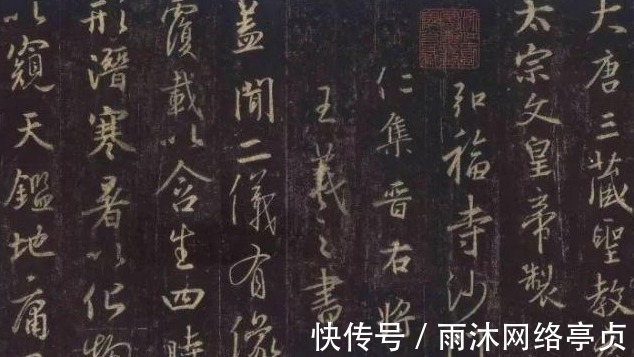 大唐三藏聖教
太宗文皇帝製
弘福寺沙
仁集晋右將
王羲之書
蓋聞二儀有像
覆載以含生四時
形潛寒暑以化物
以窺天鑑地庸
快传号 / 雨沐网络亭贞